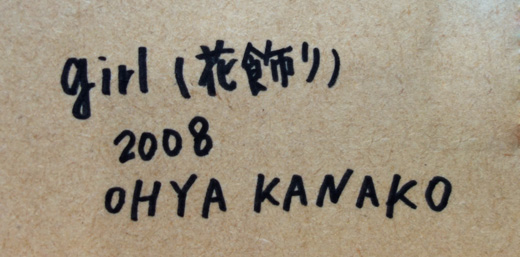 girl (花飾り)
2008
OHYA KANAKO